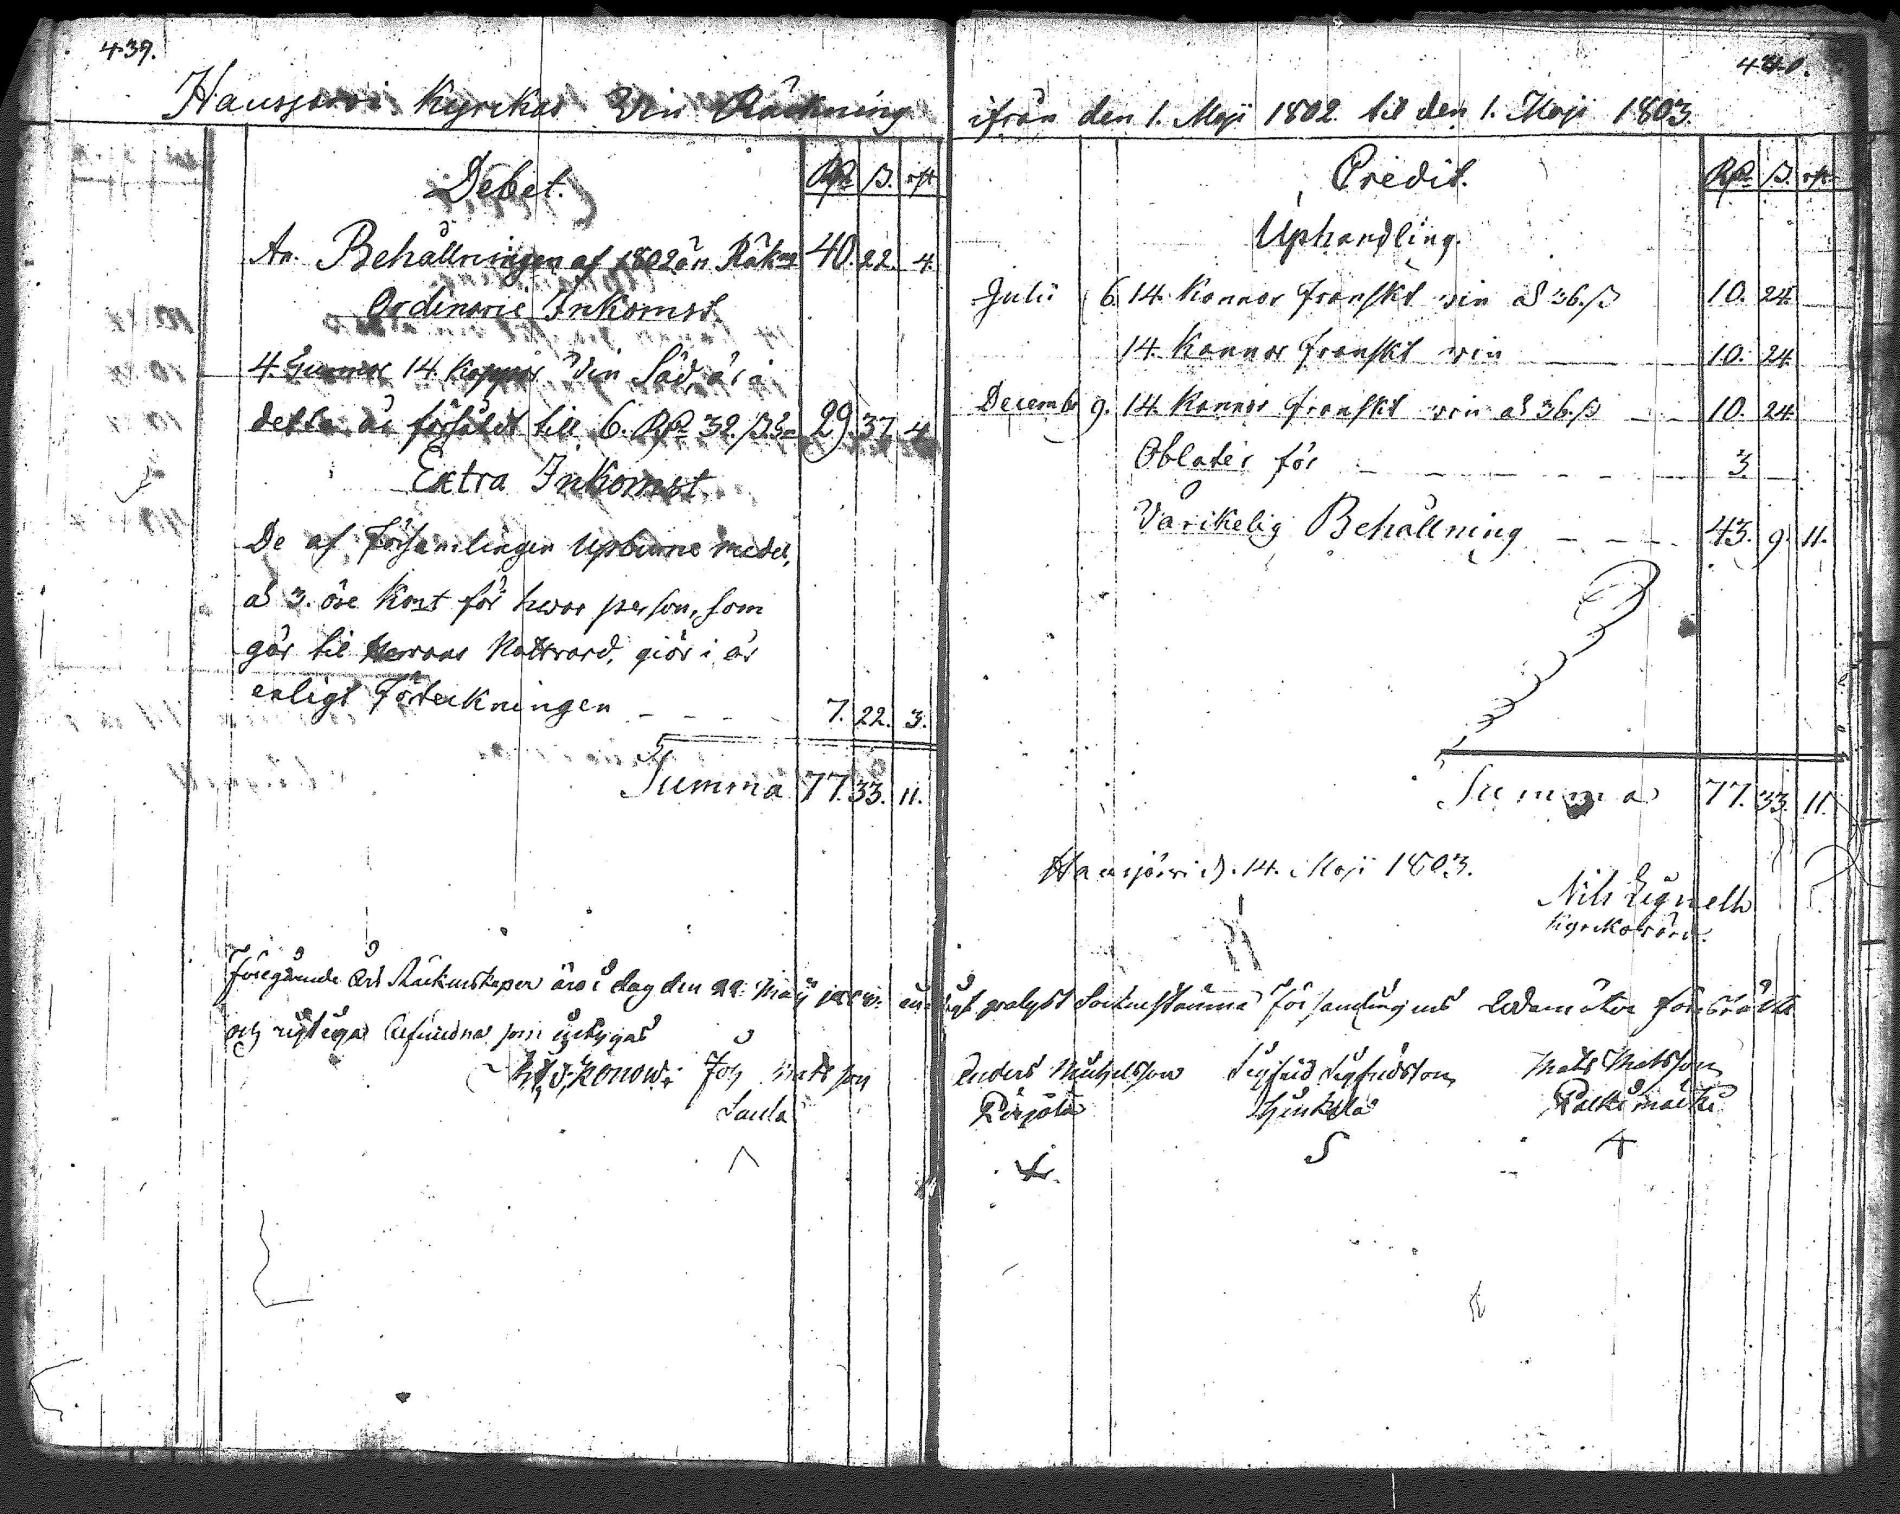 439.
Hausjärvi Kyrkas Vin Räkning
Debet. Rd. ß. rst.
An. Behållningen af 1802 års Räkn. 40. 22. 4.
Ordinarie Inkomst
4. Tunnor 14. Kappor Vin Säd, är i
detta år försåldt till 6. Rd. 32. ß 29. 37. 4.
Extra Inkomst.
De af Församlingen Upburne medel,
a 3. öre Kont för hvar person, som
går til Herrans Nattvard, giör i år
enligt Förteckningen 7. 22. 3.
Summa 77. 33. 11.
Föregående års Räkenskaper äro i dag den 22. Maij
och riktiga befundna som intygas
Joh Mattsson
Saula
440.
ifrån den 1. Maji 1802. til den 1. Maji 1803.
Credit. Rd. ß. rst.
Uphandling.
Julii 6. 14. Kannor franskt vin a 36. ß 10. 24.
14. Kannor franskt vin 10. 24.
Decemb 9. 14. Kannor franskt vin a 36. ß 10. 24.
Oblater för 3.
Värkelig Behållning 43. 9. 11.
Summa 77. 33. 11.
Hausjärvi d. 14. Maji 1803.
Nils Lignell
Kyrkovärd.
Sockenstämma församlingens Ledamöter
Anders Michelsson Sigfrid Sigfridsson Mats Matsson
Pirjola
S